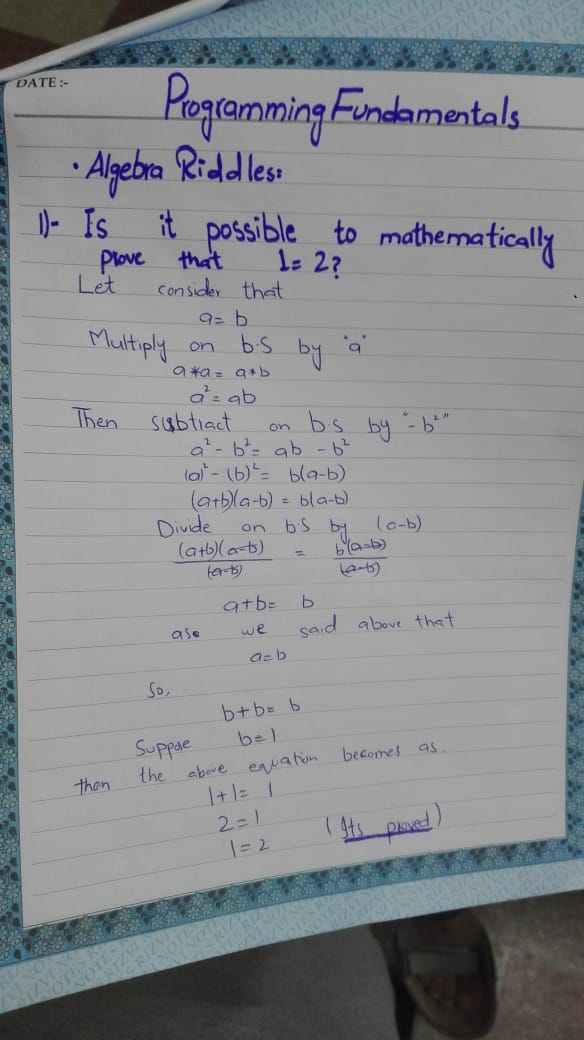 DATE :-
Programming Fundamentals
• Algebra Riddles:
1)- Is it possible to mathematically
prove that 1= 2?
Let consider that
a= b
Multiply on b.s by "a"
a*a= a*b
a²= ab
Then subtract on b.s by "-b²"
a²- b²= ab - b²
(a)²- (b)²= b(a-b)
(a+b)(a-b) = b(a-b)
Divide on b.s by (a-b)
(a+b)(a-b) = b(a-b)
(a-b) (a-b)
a+b= b
ase we said above that
a=b
So,
b+b= b
Suppose b=1
then the above equation becomes as.
1+1= 1
2=1
1=2 (Its proved)